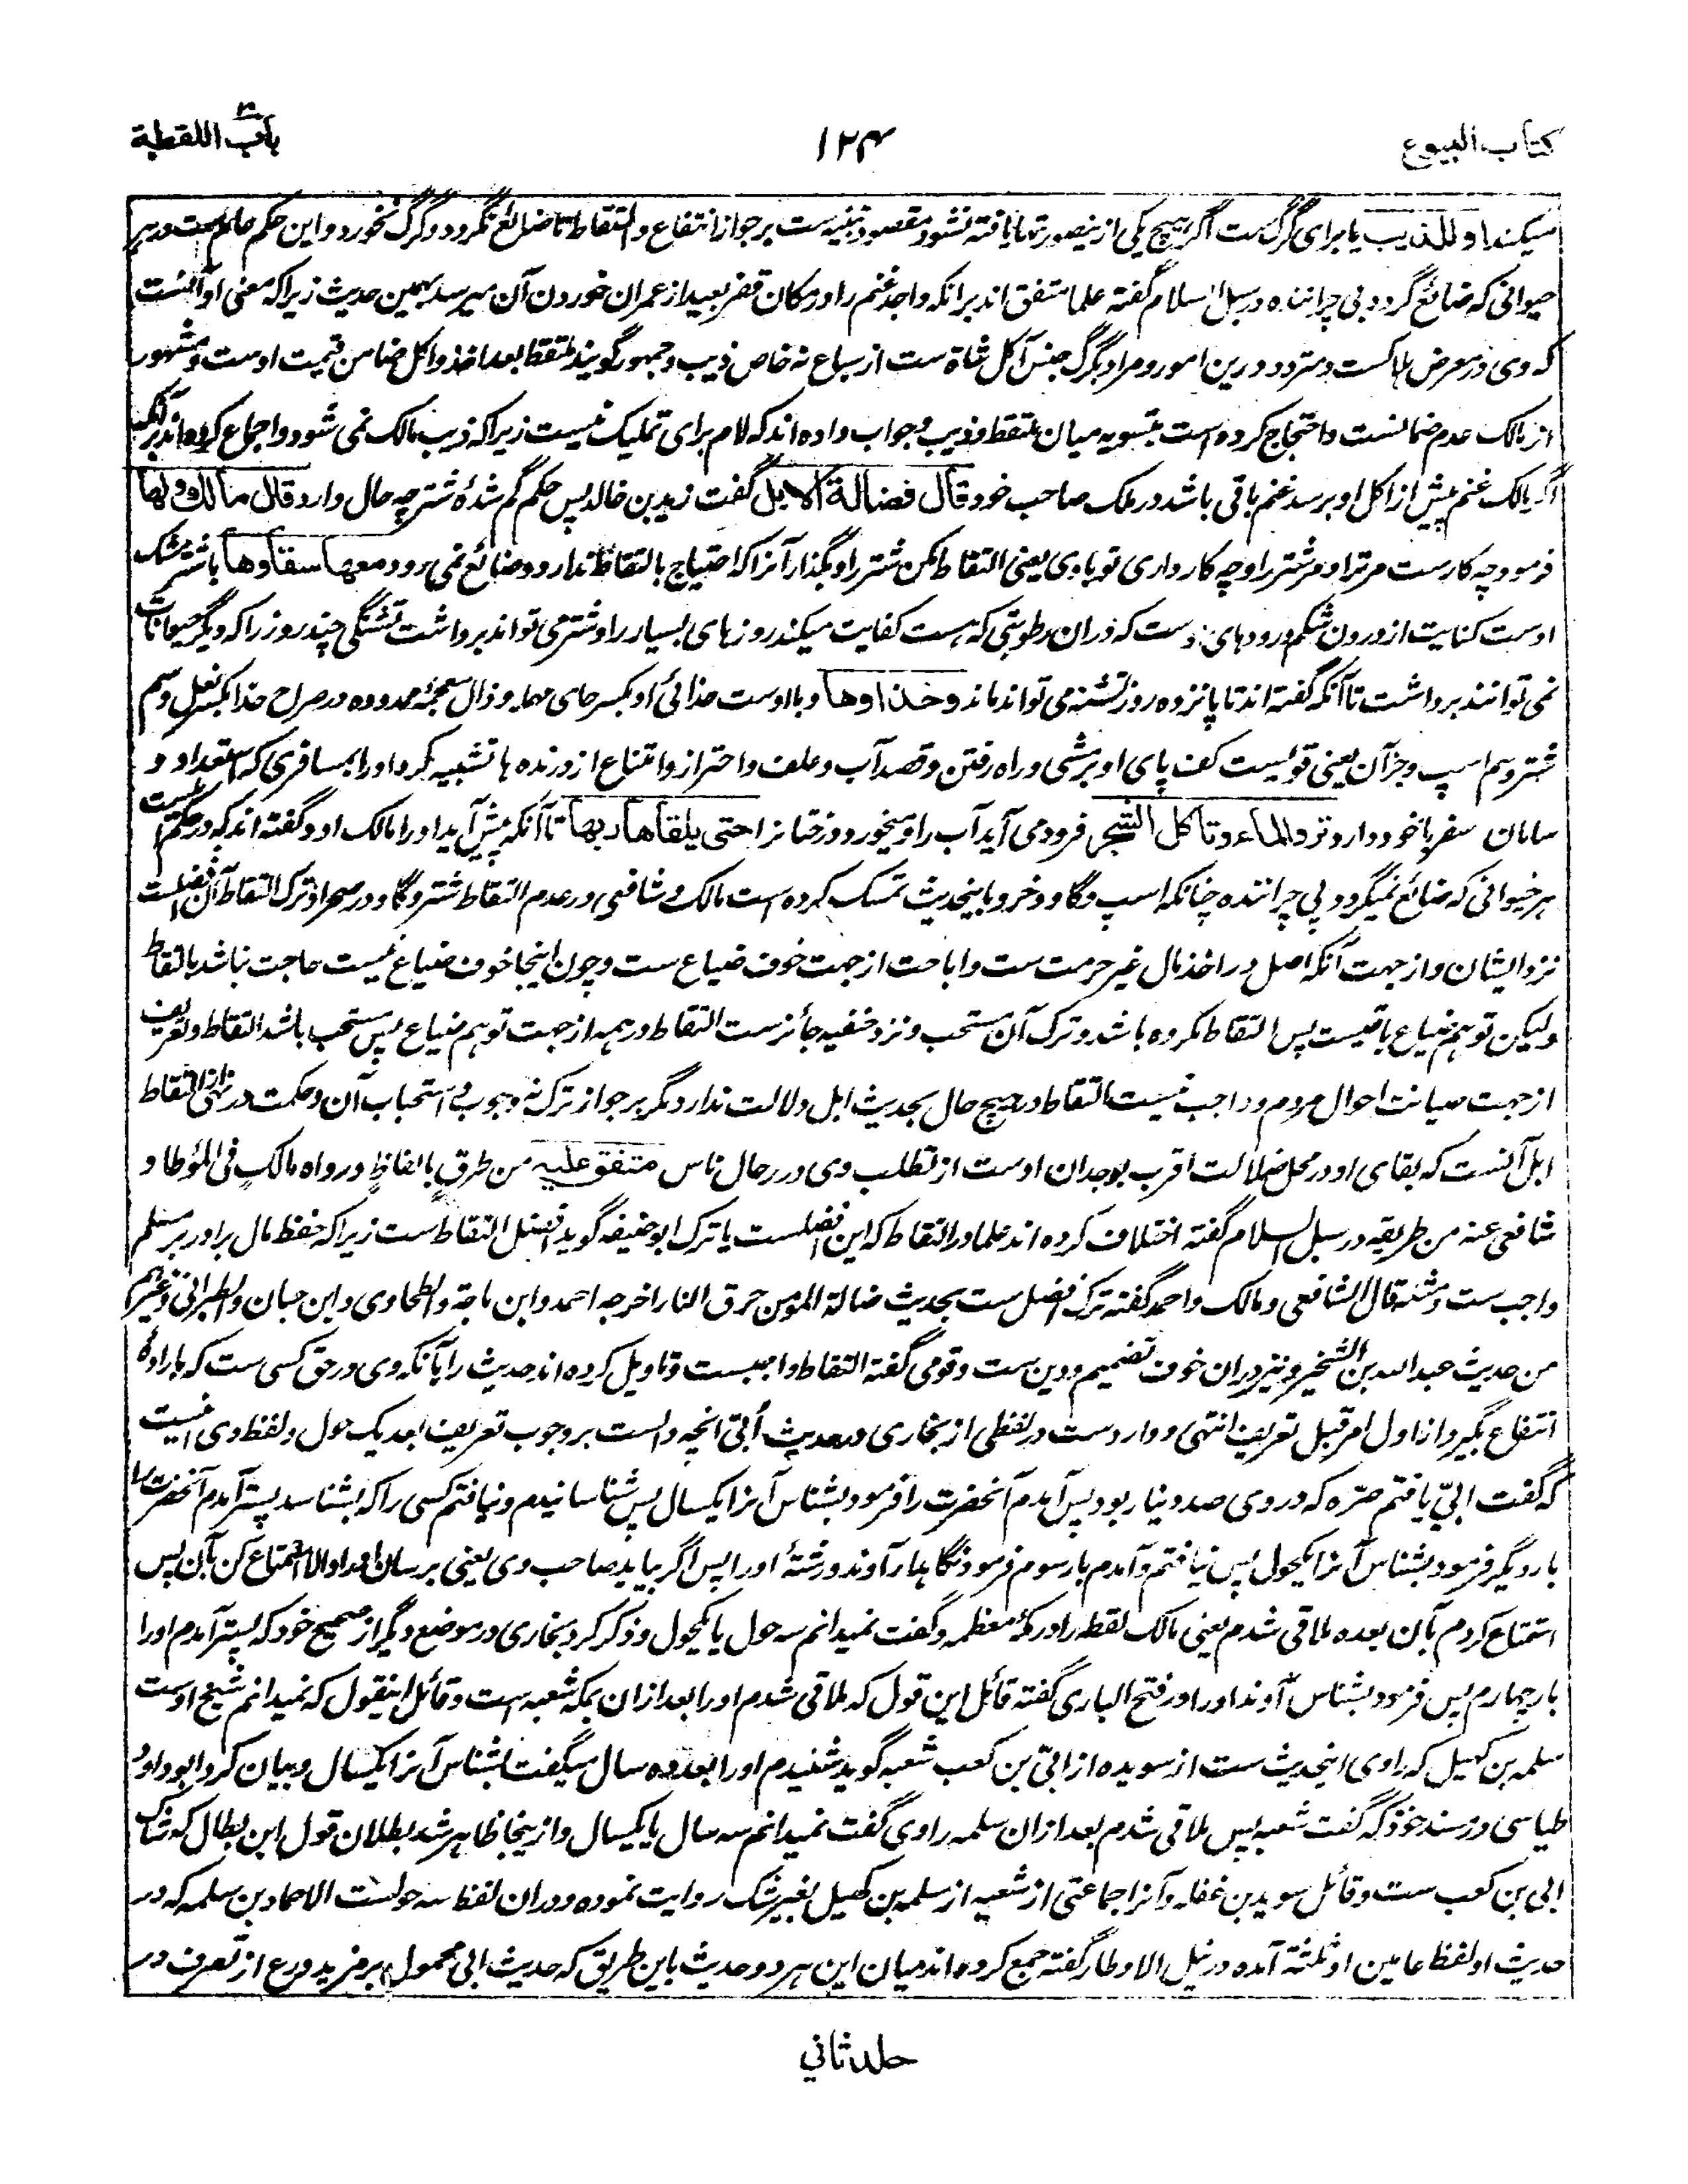 کتاب البیوع
۱۲۴
باب اللقطة
میکند او للذیب یا برای گرگ ست اگر هیچ یکی ازینصورتها یافته نشود مقصود تنبیه ست بر جواز انتفاع والتقاط تا ضائع نگردد و گرگ نخورد و این حکم عام ست در هر
حیوانی که ضائع گردد بی چراننده در سبل السلام گفته علما متفق اند برانکه واجد غنم را در مکان قفر بعید از عمران خوردن آن میرسد بهمین حدیث زیراکه معنی او آنست
که وی در معرض هلاکست و متردد درین امور و مراد بگرگ جنس آکل شاة ست از سباع نه خاص ذیب و جمهور گویند ملتقط بعد اخذ و اکل ضامن قیمت اوست و مشهور
از مالک عدم ضمانست و احتجاج کرده است بتسویه میان ملتقط و ذیب و جواب داده اند که لام برای تملیک نیست زیراکه ذیب مالک نمی شود و اجماع کرده اند برآنکه
اگر مالک غنم پیش از اکل او برسد غنم باقی باشد در ملک صاحب خود قال فضالة الابل گفت زید بن خالد پس حکم گم شدهٔ شتر چه حال دارد قال مالك ولها
فرمود چه کارست مر ترا و مر شتر را و چه کار داری تو با وی یعنی التقاط مکن شتر را و بگذار آنرا که احتیاج بالتقاط ندارد و ضائع نمی رود معها سقاوها با شتر مشک
اوست کنایت از درون شکم و رودهای اوست که دران رطوبتی که هست کفایت میکند روزهای بسیار را و شتر می تواند برداشت تشنگی چند روز را که دیگر حیوانات
نمی توانند برداشت تا آنکه گفته اند تا پانزده روز تشنه می تواند ماند وحذاوها و با اوست حذائی او بکسر حای مهمله و ذال معجمهٔ ممدوده در صراح حذا بکسر نعل و سم
شتر و سم اسپ و جز آن یعنی قویست کف پای او بر مشی و راه رفتن و قصد آب و علف و احتراز و امتناع از درنده ها تشبیه کرد او را بمسافری که استعداد و
سامان سفر با خود دارد ترد الماء وتاكل الشجر فرود می آید آب را و میخورد درختانرا حتی یلقاها ربها تا آنکه پیش آید او را مالک او و گفته اند که در حکم اشترست
هر حیوانی که ضائع نمیگردد بی چراننده چنانکه اسپ و گاو و خر و باینحدیث تمسک کرده است مالک و شافعی در عدم التقاط شتر و گاو در صحرا و ترک التقاط آن افضلست
نزد ایشان و از جهت آنکه اصل در اخذ مال غیر حرمت ست و اباحت از جهت خوف ضیاع ست و چون اینجا خوف ضیاع نیست حاجت نباشد بالتقاط
ولیکن توهم ضیاع باقیست پس التقاط مکروه باشد و ترک آن مستحب و نزد حنفیه جائزست التقاط در همه از جهت توهم ضیاع پس مستحب باشد التقاط و تعریف
از جهت صیانت احوال مردم و واجب نیست التقاط در هیچ حال بحدیث ابل دلالت ندارد مگر بر جواز ترک نه وجوب و استحباب آن و حکمت در نهی از التقاط
ابل آنست که بقای او در محل ضلالت اقرب بوجدان اوست از تطلب وی در رحال ناس متفق علیه من طرق بالفاظ و رواه مالک فی المؤطا و
شافعی عنه من طریقه در سبل السلام گفته اختلاف کرده اند علما در التقاط که این افضلست یا ترک ابو حنیفه گوید افضل التقاط ست زیراکه حفظ مال برادر بر مسلم
واجب ست ومثله قال الشافعی و مالک و احمد گفته ترک افضل ست بحدیث ضالة المومن حرق النار اخرجه احمد وابن ماجة والطحاوی وابن حبان والطبرانی وغیرهم
من حدیث عبد الله بن الشخیر و نیز دران خوف تضمیم و دین ست و قومی گفته التقاط واجبست و تاویل کرده اند حدیث را بآنکه وی در حق کسی ست که بارادهٔ
انتفاع بگیرد از اول امر قبل تعریف انتهی و واردست در لفظی از بخاری در حدیث أبی آنچه دالست بر وجوب تعریف بعد یک حول و لفظ وی اینست
که گفت ابیّ یافتم صرّه که در وی صد دینار بود پس آمدم آنحضرت را فرمود بشناس آنرا یکسال پس شناسانیدم و نیافتم کسی را که بشناسد پستر آمدم آنحضرت را
بار دیگر فرمود بشناس آنرا یکحول پس نیافتم و آمدم بار سوم فرمود نگاهدار آوند و رشتهٔ او را پس اگر بیاید صاحب وی یعنی برسان او را والا استمتاع کن بآن پس
استمتاع کردم بآن بعده ملاقی شدم یعنی مالک لقطه را در مکهٔ معظمه و گفت نمیدانم سه حول یا یکحول و ذکر کرد بخاری در موضع دیگر از صحیح خود که پستر آمدم او را
بار چهارم پس فرمود بشناس آوند او را در فتح الباری گفته قائل این قول که ملاقی شدم او را بعد ازان بمکه شعبه است و قائل اینقول که نمیدانم شیخ اوست
سلمه بن کهیل که راوی اینحدیث ست از سوید از ابیّ بن کعب شعبه گوید شنیدم او را بعد ده سال میگفت بشناس آنرا یکسال و بیان کرد ابو داود
طیاسی در مسند خود که گفت شعبه پس ملاقی شدم بعد ازان سلمه راوی گفت نمیدانم سه سال یا یکسال و ازینجا ظاهر شد بطلان قول ابن بطال که شاک
ابی بن کعب ست و قائل سوید بن غفله و آنرا جماعتی از شعبه از سلمه بن کهیل بغیر شک روایت نموده و دران لفظ سه حولست الا حماد بن سلمه که در
حدیث او لفظ عامین او ثلثة آمده در نیل الاوطار گفته جمع کرده اند میان این هر دو حدیث باین طریق که حدیث ابی محمول بر مزید ورع از تصرف در
جلد ثانی